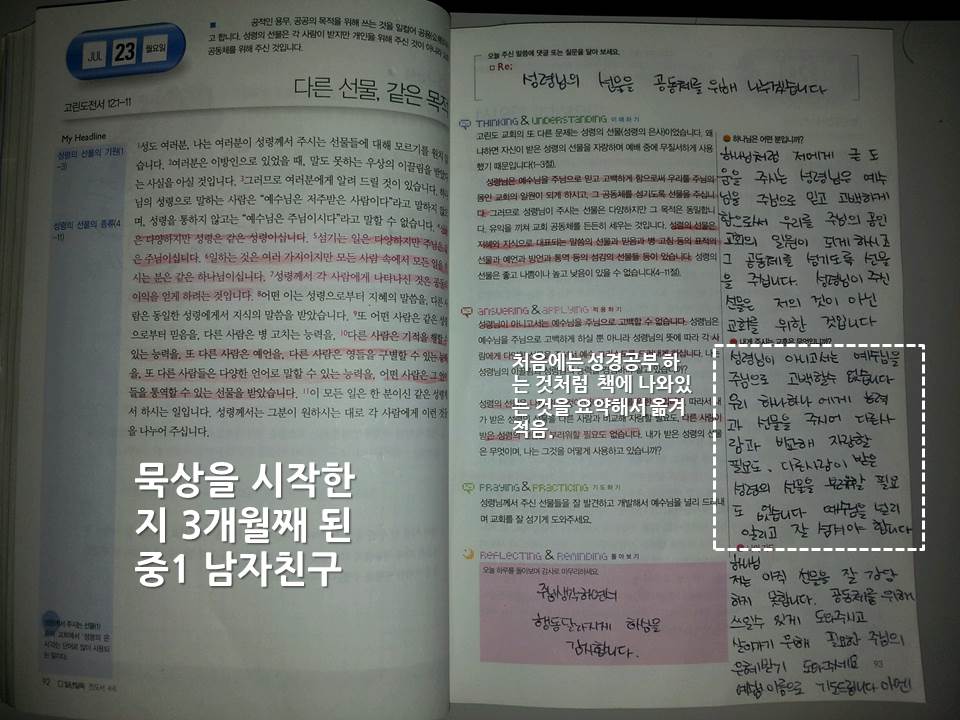 JUL 23 월요일
공적인 용무, 공공의 목적을 위해 쓰는 것을 일컬어
고 합니다. 성령의 선물은 각 사람이 받지만 개인을 위해 주신 것이 아니라
공동체를 위해 주신 것입니다.
다른 선물, 같은 목적
고린도전서 12:1-11
My Headline
성령의 선물의 기원(1
-3)
성령의 선물의 종류(4
-11)
1성도 여러분, 나는 여러분이 성령께서 주시는 선물들에 대해 모르기를 원치
습니다. 2여러분은 이방인으로 있었을 때, 말도 못하는 우상의 이끌림을 받았
는 사실을 아실 것입니다. 3그러므로 여러분에게 알려 드릴 것이 있습니다. 하나
님의 성령으로 말하는 사람은 “예수님은 저주받은 사람이다”라고 말하지 않
며, 성령을 통하지 않고는 “예수님은 주님이시다”라고 말할 수 없습니다.
은 다양하지만 성령은 같은 성령이십니다. 5섬기는 일은 다양하지만 주님은
은 주님이십니다. 6일하는 것은 여러 가지이지만 모든 사람 속에서 모든 일을
시는 분은 같은 하나님이십니다. 7성령께서 각 사람에게 나타나신 것은 공동
이익을 얻게 하려는 것입니다. 8어떤 이는 성령으로부터 지혜의 말씀을, 다른 사
람은 동일한 성령에게서 지식의 말씀을 받았습니다. 9또 어떤 사람은 같은 성
으로부터 믿음을, 다른 사람은 병 고치는 능력을, 10다른 사람은 기적을 행할
있는 능력을, 또 다른 사람은 예언을, 다른 사람은 영들을 구별할 수 있는 능
을, 또 다른 사람들은 다양한 언어로 말할 수 있는 능력을, 어떤 사람은 그 언
들을 통역할 수 있는 선물을 받았습니다. 11이 모든 일은 한 분이신 같은 성령
서 하시는 일입니다. 성령께서는 그분이 원하시는 대로 각 사람에게 이런 것
을 나누어 주십니다.
묵상을 시작한
지 3개월째 된
중1 남자친구
92
오늘 주신 말씀에 댓글 또는 질문을 달아 보세요.
Re:
성령님의 선물을 공동체를 위해 나누겠습니다
THINKING & UNDERSTANDING 이해하기
고린도 교회의 또 다른 문제는 성령의 선물(성령의 은사)이었습니다. 왜
냐하면 자신이 받은 성령의 선물을 자랑하며 예배 중에 무질서하게 사용
했기 때문입니다(1-3절).
성령님은 예수님을 주님으로 믿고 고백하게 함으로써 우리를 주님의
몸인 교회의 일원이 되게 하시고, 그 공동체를 섬기도록 선물을 주십니
다. 그러므로 성령님이 주시는 선물은 다양하지만 그 목적은 동일합니
다. 유익을 끼쳐 교회 공동체를 든든히 세우는 것입니다. 성령의 선물은
지혜와 지식으로 대표되는 말씀의 선물과 믿음과 병 고침 등의 표적의
선물과 예언과 방언과 통역 등의 성감의 선물들 등이 있습니다. 성령의
선물은 좋고 나쁨이나 높고 낮음이 있을 수 없습니다(4-11절).
ANSWERING & APPLYING 적용하기
성령님이 아니고서는 예수님을 주님으로 고백할 수 없습니다. 성령님은
예수님을 주님으로 고백하게 하실 뿐 아니라 성령님의 뜻에 따라 각 사
처음에는 성경공부 하
는 것처럼 책에 나와있
는 것을 요약해서 옮겨
적음.
가 받은 성령의 선물을 다른 사람과 비교해 자랑할 필요도, 다른 사람이
부러워할 필요도 없습니다. 내가 받은 성령의 선물
은 무엇이며, 나는 그것을 어떻게 사용하고 있습니까?
PRAYING & PRACTICING 기도하기
성령님께서 주신 선물들을 잘 발견하고 개발해서 예수님을 널리 드러내
며 교회를 잘 섬기게 도와주세요.
REFLECTING & REMINDING 돌아보기
오늘 하루를 돌아보며 감사로 마무리하세요.
주님생각하면서
행동단하시게 하심을
감사합니다.
하나님은 어떤 분입니까?
하나님처럼 저에게 큰 도
움을 주시는 성령님은 예수
님을 주님으로 믿고 고백하게
함으로써 우리를 주님의 몸인
교회의 일원이 되게 하시고
그 공동체를 섬기도록 선물
을 주십니다. 성령님이 주신
선물은 저의 것이 아닌
교회를 위한 것입니다
내게 주시는 교훈은 무엇입니까?
성령님이 아니고서는 예수님을
주님으로 고백할수 없습니다
우리 하나하나에게 능력
과 선물을 주시어 다른사
람과 비교해 자랑할
필요도, 다른사람이 받은
성령의 선물을 부러워할 필요
도 없습니다 예수님을 널리
알리고 잘 섬겨야 합니다
하나님
저는 아직 선물을 잘 감당
하지 못합니다. 공동체를 위해
쓰일수 있게 도와주시고
살아가기 위해 필요한 주님의
은혜받기 도와주세요
예수님 이름으로 기도드립니다 아멘!
93